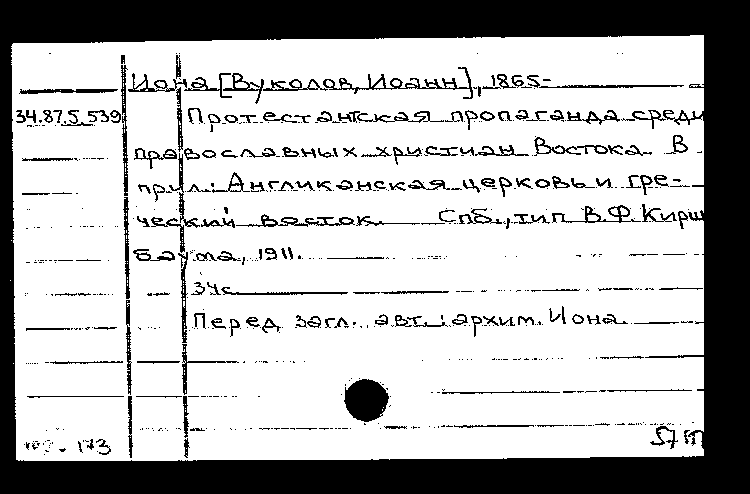 Иона [Вуколов, Иоанн], 1865-
34.87.5.539
Протестантская пропаганда среди
православных христиан Востока. В
прил.: Англиканская церковь и гре-
ческий восток. Спб., тип В.Ф. Кирш
баума, 1911.
34с.
Перед загл. авт.: архим. Иона.
173
57